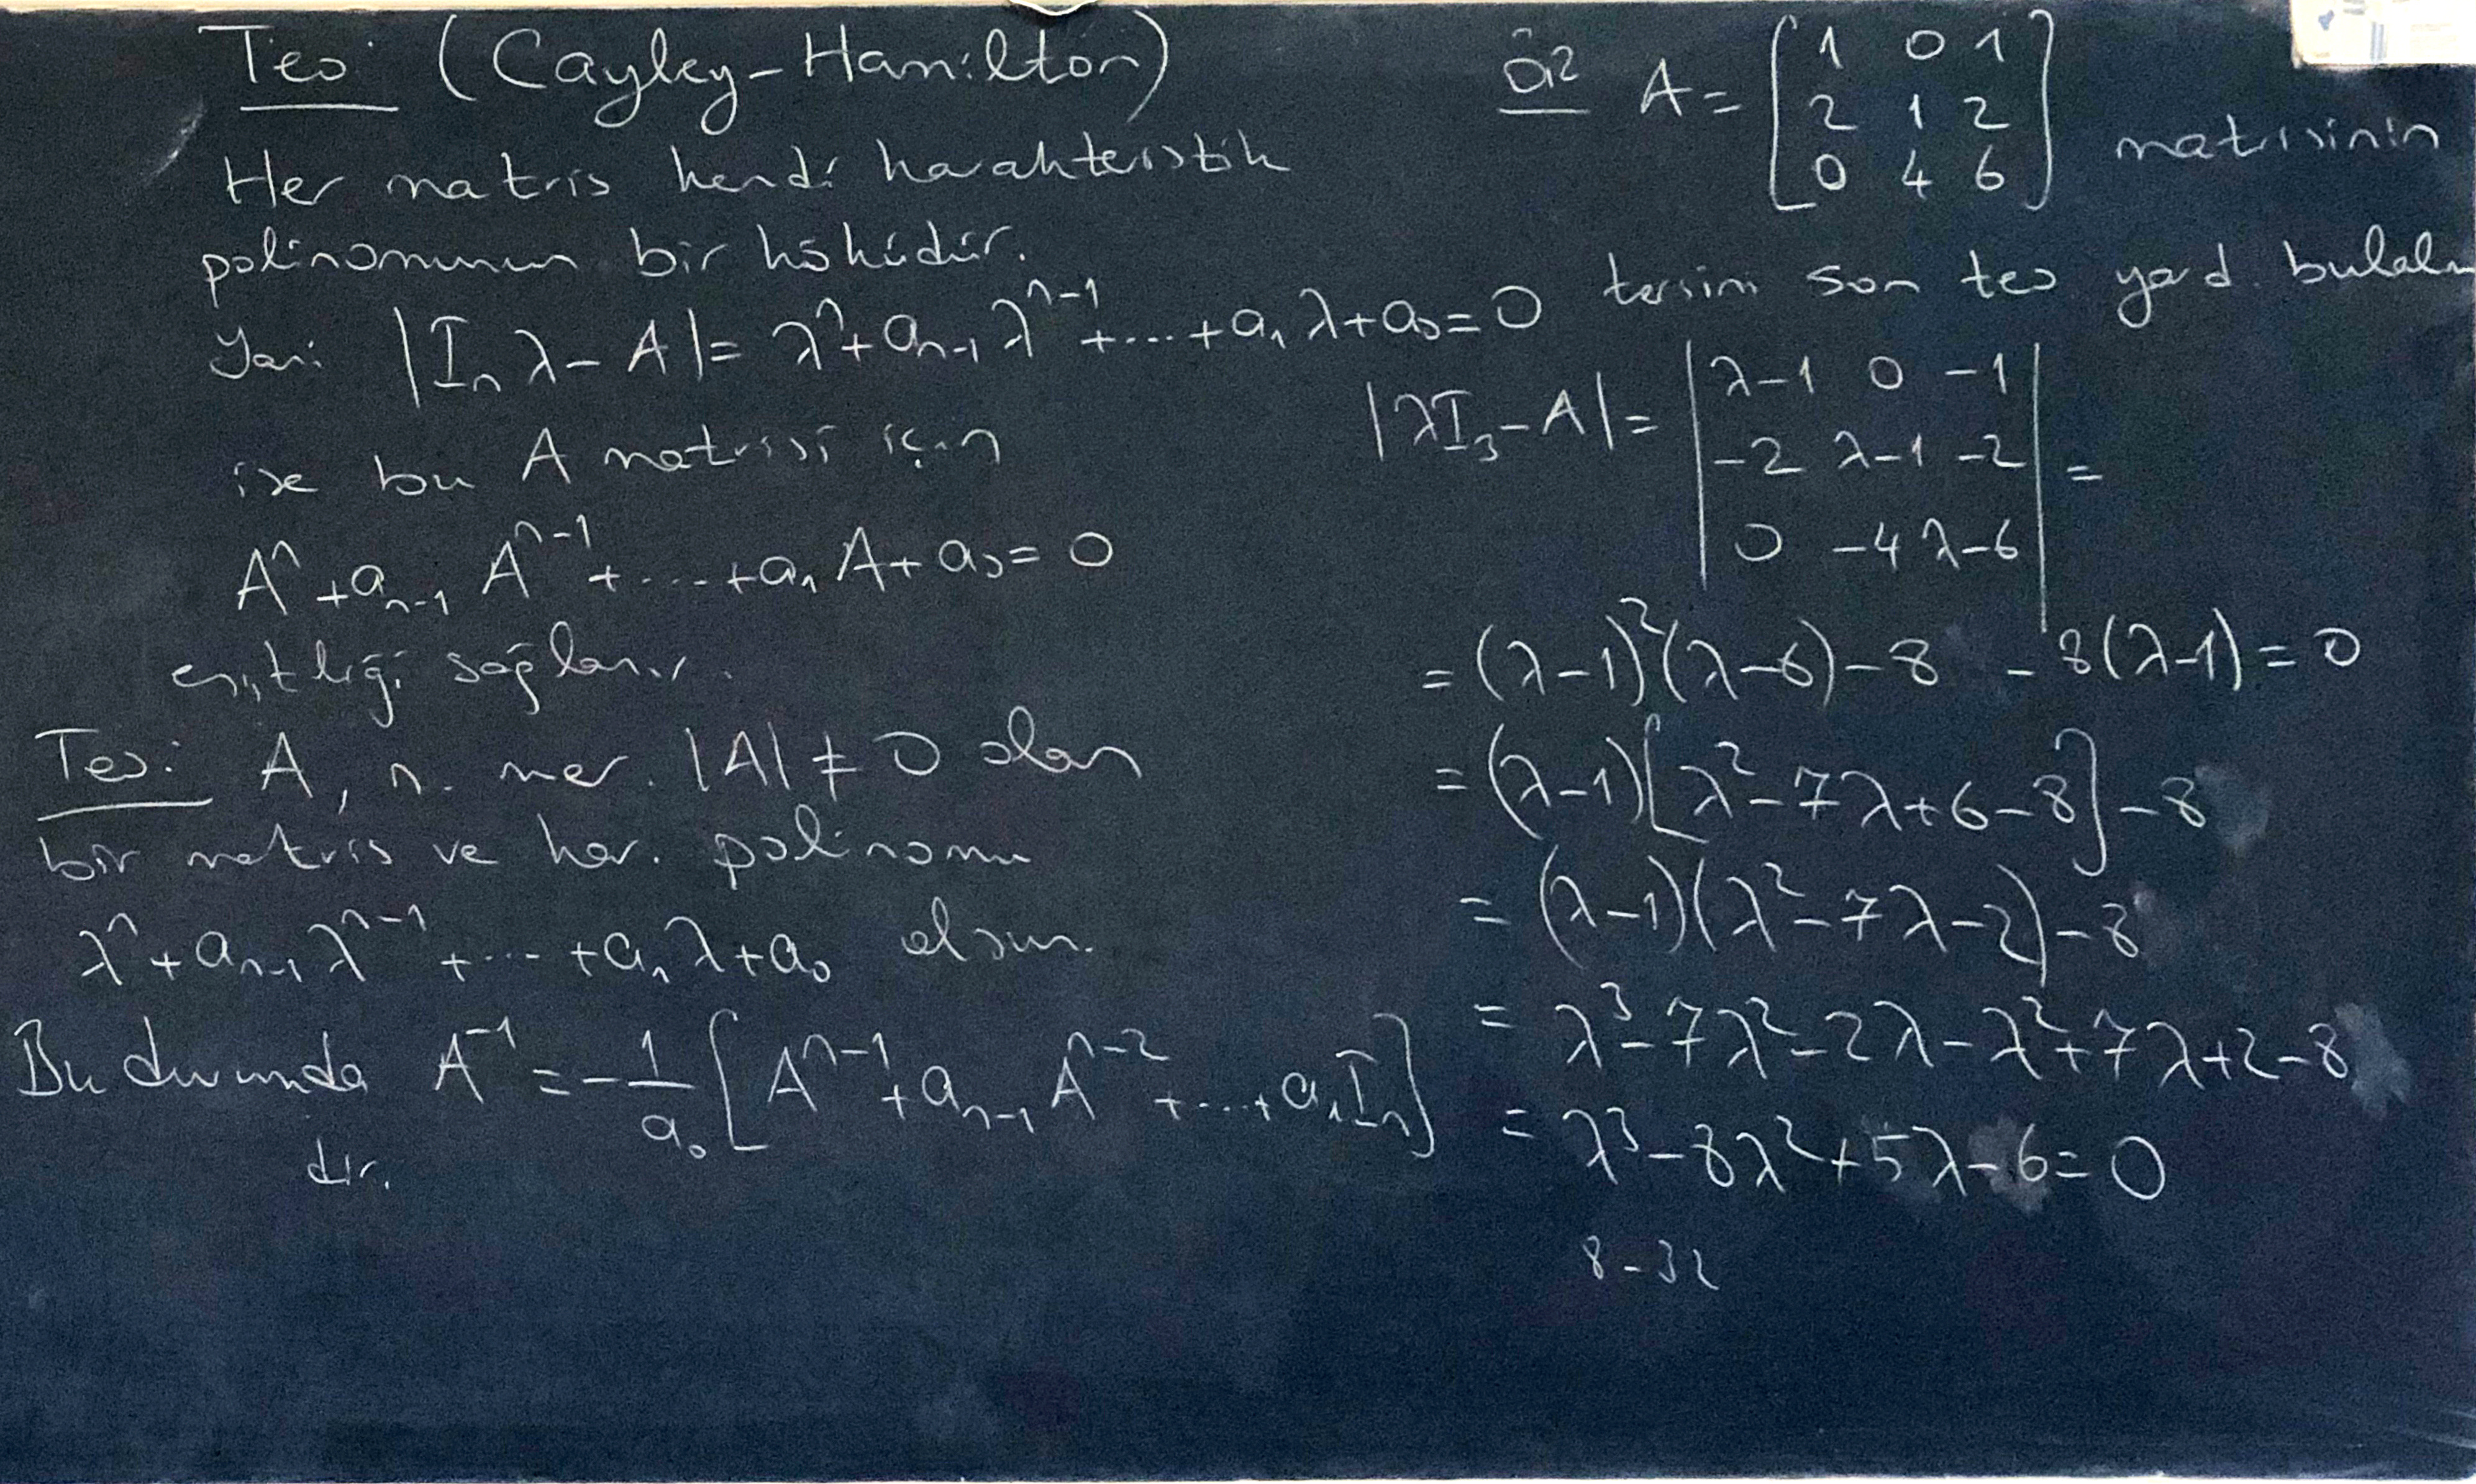 Teo: (Cayley-Hamilton)
Her matris kendi karakteristik
polinomunun bir köküdür.
Yani |Iₙλ-A| = λⁿ+aₙ₋₁λⁿ⁻¹+...+a₁λ+a₀=0
ise bu A matrisi için
Aⁿ+aₙ₋₁Aⁿ⁻¹+....+a₁A+a₀=0
eşitliği sağlanır.
Teo: A, n. mer. |A|≠0 olan
bir matris ve kar. polinomu
λⁿ+aₙ₋₁λⁿ⁻¹+...+a₁λ+a₀ olsun.
Bu durumda A⁻¹=-1/a₀[Aⁿ⁻¹+aₙ₋₁Aⁿ⁻²+...+a₁Iₙ]
dır.
A=[1 0 1
2 1 2
0 4 6] matrisinin
tersini son teo yard. bulalım
|λI₃-A|=|λ-1 0 -1
-2 λ-1 -2
0 -4 λ-6|=
=(λ-1)²(λ-6)-8 -8(λ-1)=0
=(λ-1)[λ²-7λ+6-8]-8
=(λ-1)(λ²-7λ-2)-8
=λ³-7λ²-2λ-λ²+7λ+2-8
=λ³-8λ²+5λ-6=0
8-32